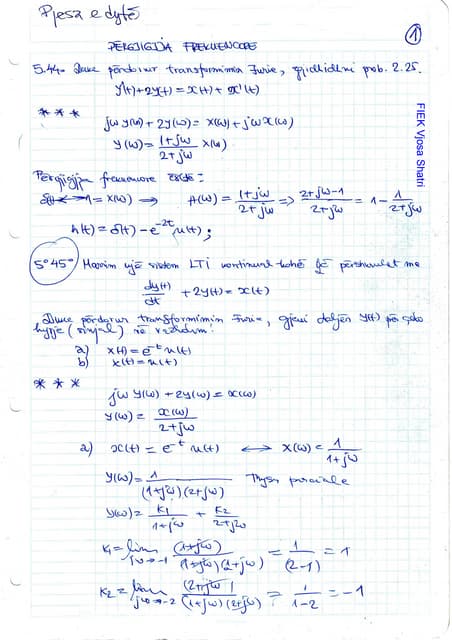 Pjesa e dytë
①
PËRGJIGJJA FREKUENCORE
5.44. Duke përdorur transformimin Furie, zgjidhidhni prob. 2.25.
y'(t)+2y(t)=x(t)+x'(t)
* * *
jω y(ω)+2y(ω)= X(ω)+jω X(ω)
Y(ω)= (1+jω)/(2+jω) X(ω)
Përgjigjja frekuencore është:
δ(t)↔1=X(ω) ⟹ H(ω)= (1+jω)/(2+jω) => (2+jω-1)/(2+jω) = 1 - 1/(2+jω)
h(t)=δ(t)-e^{-2t}u(t);
5.45 Marrim një sistem LTI kontinual kohë që përshkruhet me
dy(t)/dt + 2y(t)=x(t)
Duke përdorur transformimin Furie, gjeni daljen y(t) për çdo
hyrje (sinjal) në vazhdim:
a) x(t)=e^{-t}u(t)
b) x(t)=u(t)
* * *
jω Y(ω)+2y(ω)=x(ω)
y(ω)= x(ω)/(2+jω)
a) x(t)=e^{-t}u(t) ⟷ X(ω)= 1/(1+jω)
Y(ω)= 1/((1+jω)(2+jω)) Thysa parciale
Y(ω)= K1/(1+jω) + K2/(2+jω)
K1=lim jω→-1 (1+jω)/((1+jω)(2+jω)) = 1/(2-1) = 1
K2=lim jω→-2 (2+jω)/((1+jω)(2+jω)) = 1/(1-2) = -1
FIEK Vjosa Shatri